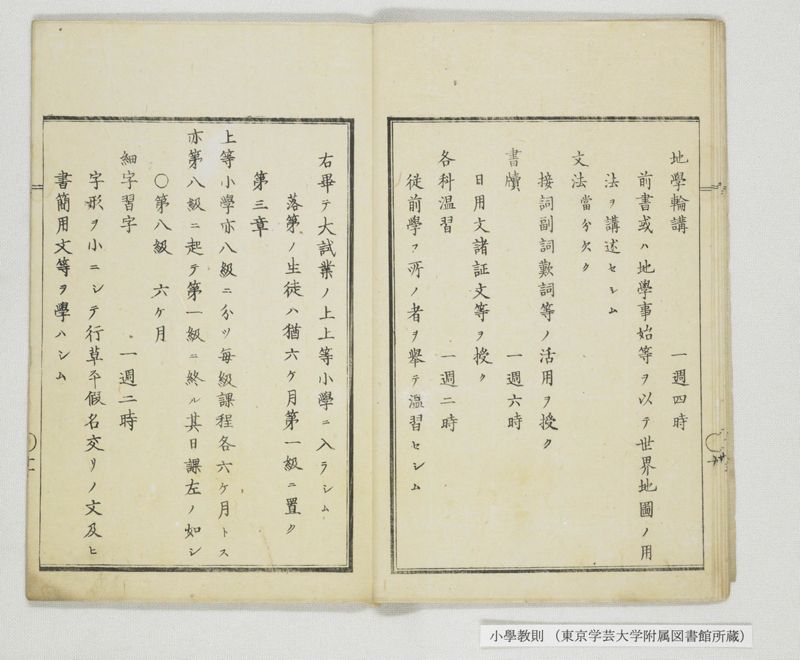 地學輪講　一週四時
前書或ハ地學事始等ヲ以テ世界地圖ノ用
法ヲ講述セシム
文法當分欠ク
接詞副詞歎詞等ノ活用ヲ授ク
書牘　一週六時
日用文諸証文等ヲ授ク
各科温習　一週二時
從前學フ所ノ者ヲ擧テ温習セシム
右畢テ大試業ノ上上等小學ニ入ラシム
落第ノ生徒ハ猶六ケ月第一級ニ置ク
第三章
上等小學亦八級ニ分ツ毎級課程各六ケ月トス
亦第八級ニ起テ第一級ニ終ル其日課左ノ如シ
〇第八級　六ケ月
細字習字　一週二時
字形ヲ小ニシテ行草平假名交リノ文及ヒ
書簡用文等ヲ學ハシム
小學教則 （東京学芸大学附属図書館所蔵）